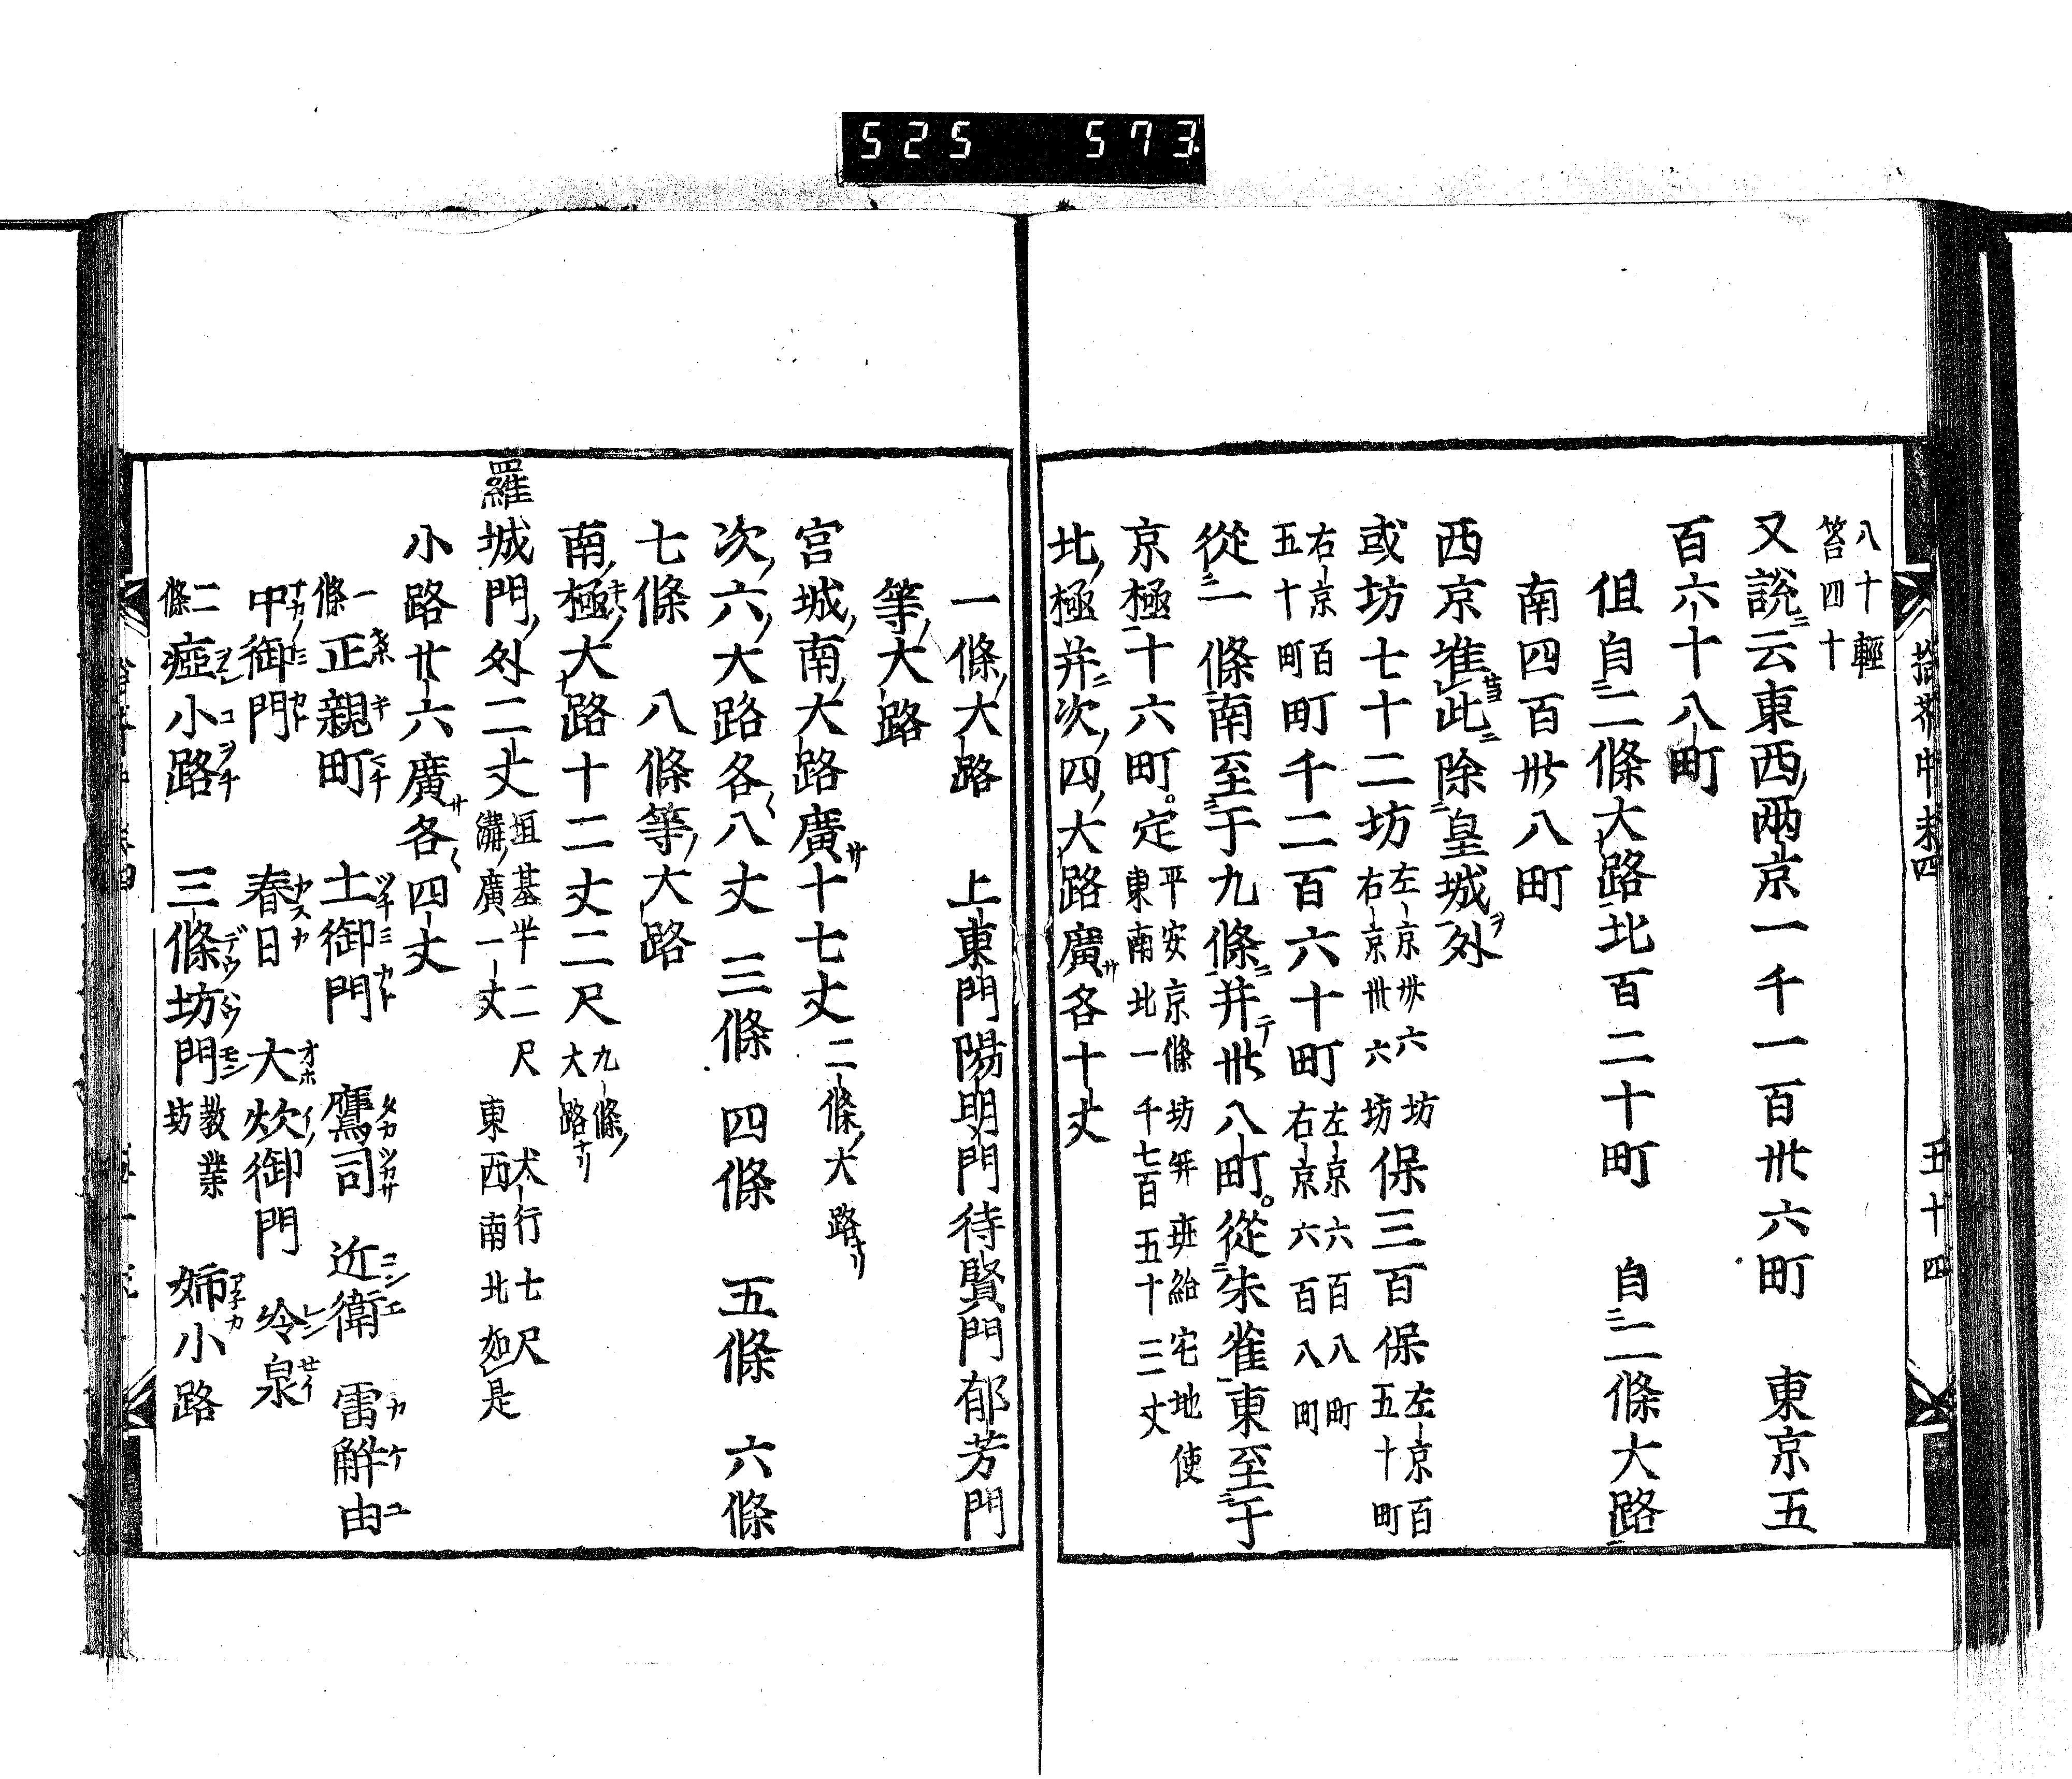 525 573
拾芥中末四
五十四
八十輕
笞四十
又説云東西兩京一千一百卅六町 東京五
百六十八町
但自二條大路北百二十町 自二條大路
南四百卌八町
西京准此除皇城外
或坊七十二坊 左京卅六坊 右京卅六坊 保三百保 左京百五十町
右京百五十町 町千二百六十町 左京六百八町 右京六百八町
從一條南至于九條并卅八町。從朱雀東至于
京極十六町。定 平安京條坊并班給宅地使 東南北一千七百五十三丈
北極并次四大路廣各十丈
一條大路 上東門陽明門待賢門郁芳門
等大路
宮城南大路廣十七丈 二條大路ナリ
次六大路各八丈 三條 四條 五條 六條
七條 八條等大路
南極大路十二丈二尺 九條大路ナリ
羅城門外二丈 垣基半二尺 犬行七尺 溝廣一丈 東西南北如是
小路廿六廣各四丈
一條 正親町 土御門 鷹司 近衛 雷解由
中御門 春日 大炊御門 冷泉
二條 瘂小路 三條坊門 教業坊 姉小路